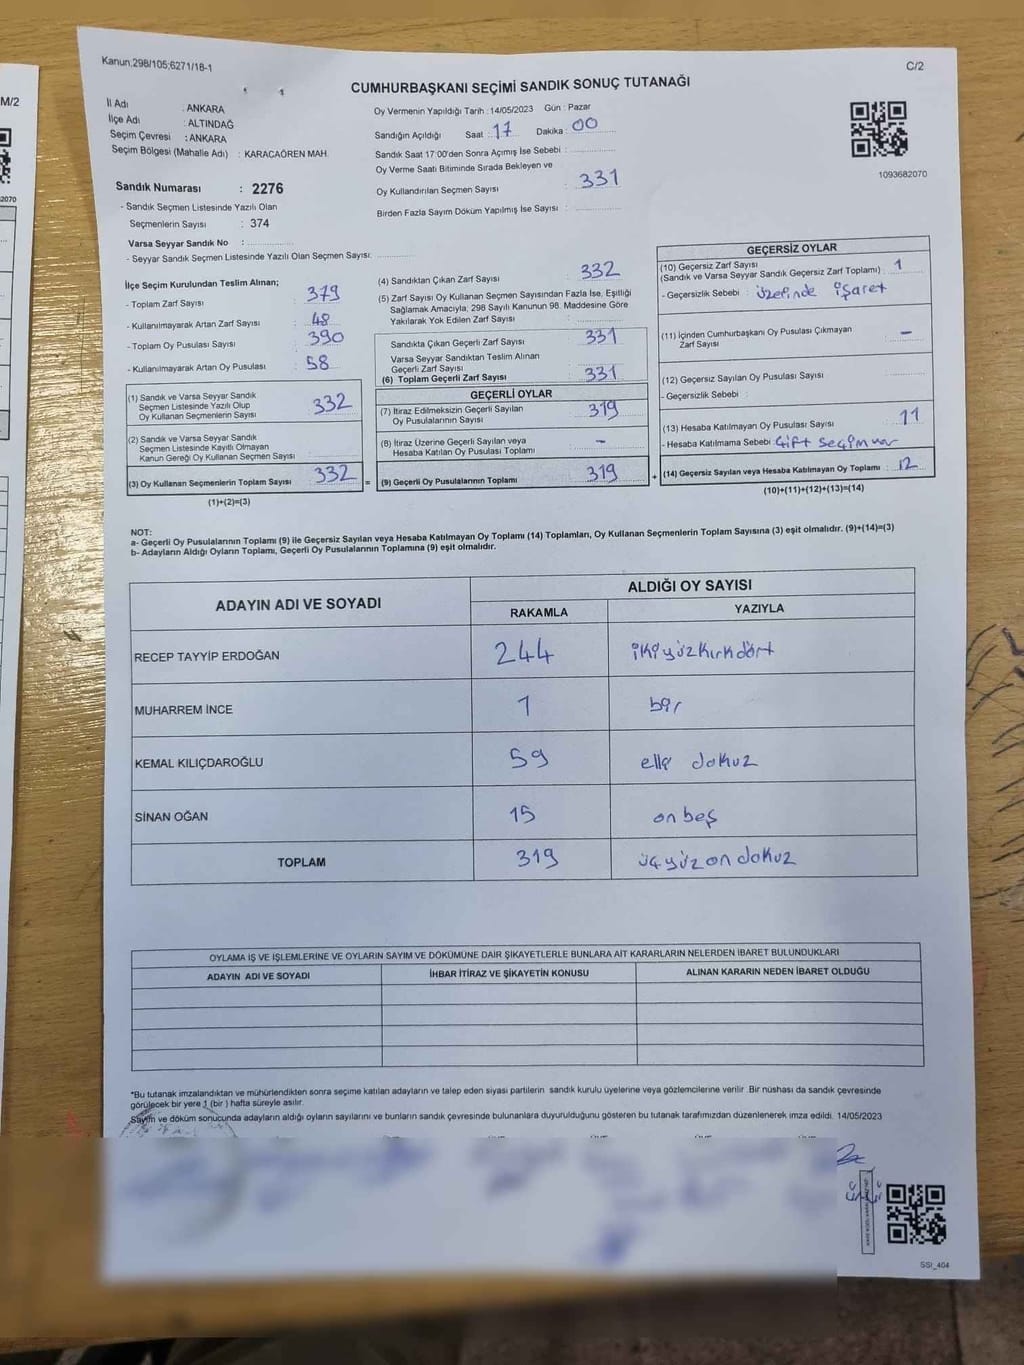 M/2
2070
Kanun,298/105;6271/18-1
C/2
CUMHURBAŞKANI SEÇİMİ SANDIK SONUÇ TUTANAĞI
İl Adı : ANKARA
İlçe Adı : ALTINDAĞ
Seçim Çevresi : ANKARA
Seçim Bölgesi (Mahalle Adı) : KARACAÖREN MAH.
Oy Vermenin Yapıldığı Tarih : 14/05/2023 Gün : Pazar
Sandığın Açıldığı Saat : 17 Dakika : 00
Sandık Saat 17:00'den Sonra Açımış İse Sebebi :
Oy Verme Saati Bitiminde Sırada Bekleyen ve
Oy Kullandırılan Seçmen Sayısı : 331
Birden Fazla Sayım Döküm Yapılmış İse Sayısı :
1093682070
Sandık Numarası : 2276
- Sandık Seçmen Listesinde Yazılı Olan
Seçmenlerin Sayısı : 374
Varsa Seyyar Sandık No :
- Seyyar Sandık Seçmen Listesinde Yazılı Olan Seçmen Sayısı:
İlçe Seçim Kurulundan Teslim Alınan;
- Toplam Zarf Sayısı : 379
- Kullanılmayarak Artan Zarf Sayısı : 48
- Toplam Oy Pusulası Sayısı : 390
- Kullanılmayarak Artan Oy Pusulası : 58
(1) Sandık ve Varsa Seyyar Sandık
Seçmen Listesinde Yazılı Olup
Oy Kullanan Seçmenlerin Sayısı : 332
(2) Sandık ve Varsa Seyyar Sandık
Seçmen Listesinde Kayıtlı Olmayan
Kanun Gereği Oy Kullanan Seçmen Sayısı :
(3) Oy Kullanan Seçmenlerin Toplam Sayısı : 332 =
(1)+(2)=(3)
(4) Sandıktan Çıkan Zarf Sayısı : 332
(5) Zarf Sayısı Oy Kullanan Seçmen Sayısından Fazla İse, Eşitliği
Sağlamak Amacıyla; 298 Sayılı Kanunun 98. Maddesine Göre
Yakılarak Yok Edilen Zarf Sayısı :
Sandıkta Çıkan Geçerli Zarf Sayısı : 331
Varsa Seyyar Sandıktan Teslim Alınan
Geçerli Zarf Sayısı :
(6) Toplam Geçerli Zarf Sayısı : 331
GEÇERLİ OYLAR
(7) İtiraz Edilmeksizin Geçerli Sayılan
Oy Pusulalarının Sayısı : 319
(8) İtiraz Üzerine Geçerli Sayılan veya
Hesaba Katılan Oy Pusulası Toplamı : -
(9) Geçerli Oy Pusulalarının Toplamı : 319 +
GEÇERSİZ OYLAR
(10) Geçersiz Zarf Sayısı
(Sandık ve Varsa Seyyar Sandık Geçersiz Zarf Toplamı) : 1
- Geçersizlik Sebebi : üzerinde işaret
(11) İçinden Cumhurbaşkanı Oy Pusulası Çıkmayan
Zarf Sayısı : -
(12) Geçersiz Sayılan Oy Pusulası Sayısı :
- Geçersizlik Sebebi :
(13) Hesaba Katılmayan Oy Pusulası Sayısı : 11
- Hesaba Katılmama Sebebi : Çift seçim var
(14) Geçersiz Sayılan veya Hesaba Katılmayan Oy Toplamı : 12
(10)+(11)+(12)+(13)=(14)
NOT:
a- Geçerli Oy Pusulalarının Toplamı (9) ile Geçersiz Sayılan veya Hesaba Katılmayan Oy Toplamı (14) Toplamları, Oy Kullanan Seçmenlerin Toplam Sayısına (3) eşit olmalıdır. (9)+(14)=(3)
b- Adayların Aldığı Oyların Toplamı, Geçerli Oy Pusulalarının Toplamına (9) eşit olmalıdır.
ADAYIN ADI VE SOYADI
ALDIĞI OY SAYISI
RAKAMLA YAZIYLA
RECEP TAYYİP ERDOĞAN 244 ikiyüzkırkdört
MUHARREM İNCE 1 bir
KEMAL KILIÇDAROĞLU 59 elli dokuz
SİNAN OĞAN 15 on beş
TOPLAM 319 üçyüz on dokuz
OYLAMA İŞ VE İŞLEMLERİNE VE OYLARIN SAYIM VE DÖKÜMÜNE DAİR ŞİKAYETLERLE BUNLARA AİT KARARLARIN NELERDEN İBARET BULUNDUKLARI
ADAYIN ADI VE SOYADI İHBAR İTİRAZ VE ŞİKAYETİN KONUSU ALINAN KARARIN NEDEN İBARET OLDUĞU
*Bu tutanak imzalandıktan ve mühürlendikten sonra seçime katılan adayların ve talep eden siyasi partilerin sandık kurulu üyelerine veya gözlemcilerine verilir .Bir nüshası da sandık çevresinde
görülecek bir yere 1 (bir ) hafta süreyle asılır.
Sayım ve döküm sonucunda adayların aldığı oyların sayılarını ve bunların sandık çevresinde bulunanlara duyurulduğunu gösteren bu tutanak tarafımızdan düzenlenerek imza edildi. 14/05/2023
SSİ_404